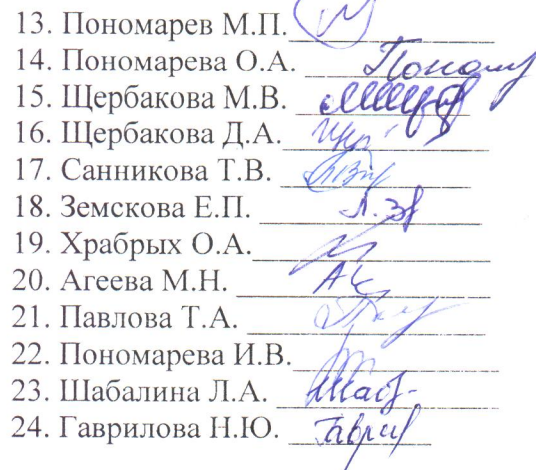 13. Пономарев М.П.
14. Пономарева О.А. Поном
15. Щербакова М.В.
16. Щербакова Д.А.
17. Санникова Т.В.
18. Земскова Е.П.
19. Храбрых О.А.
20. Агеева М.Н.
21. Павлова Т.А.
22. Пономарева И.В.
23. Шабалина Л.А. Шаб-
24. Гаврилова Н.Ю. Гаврил